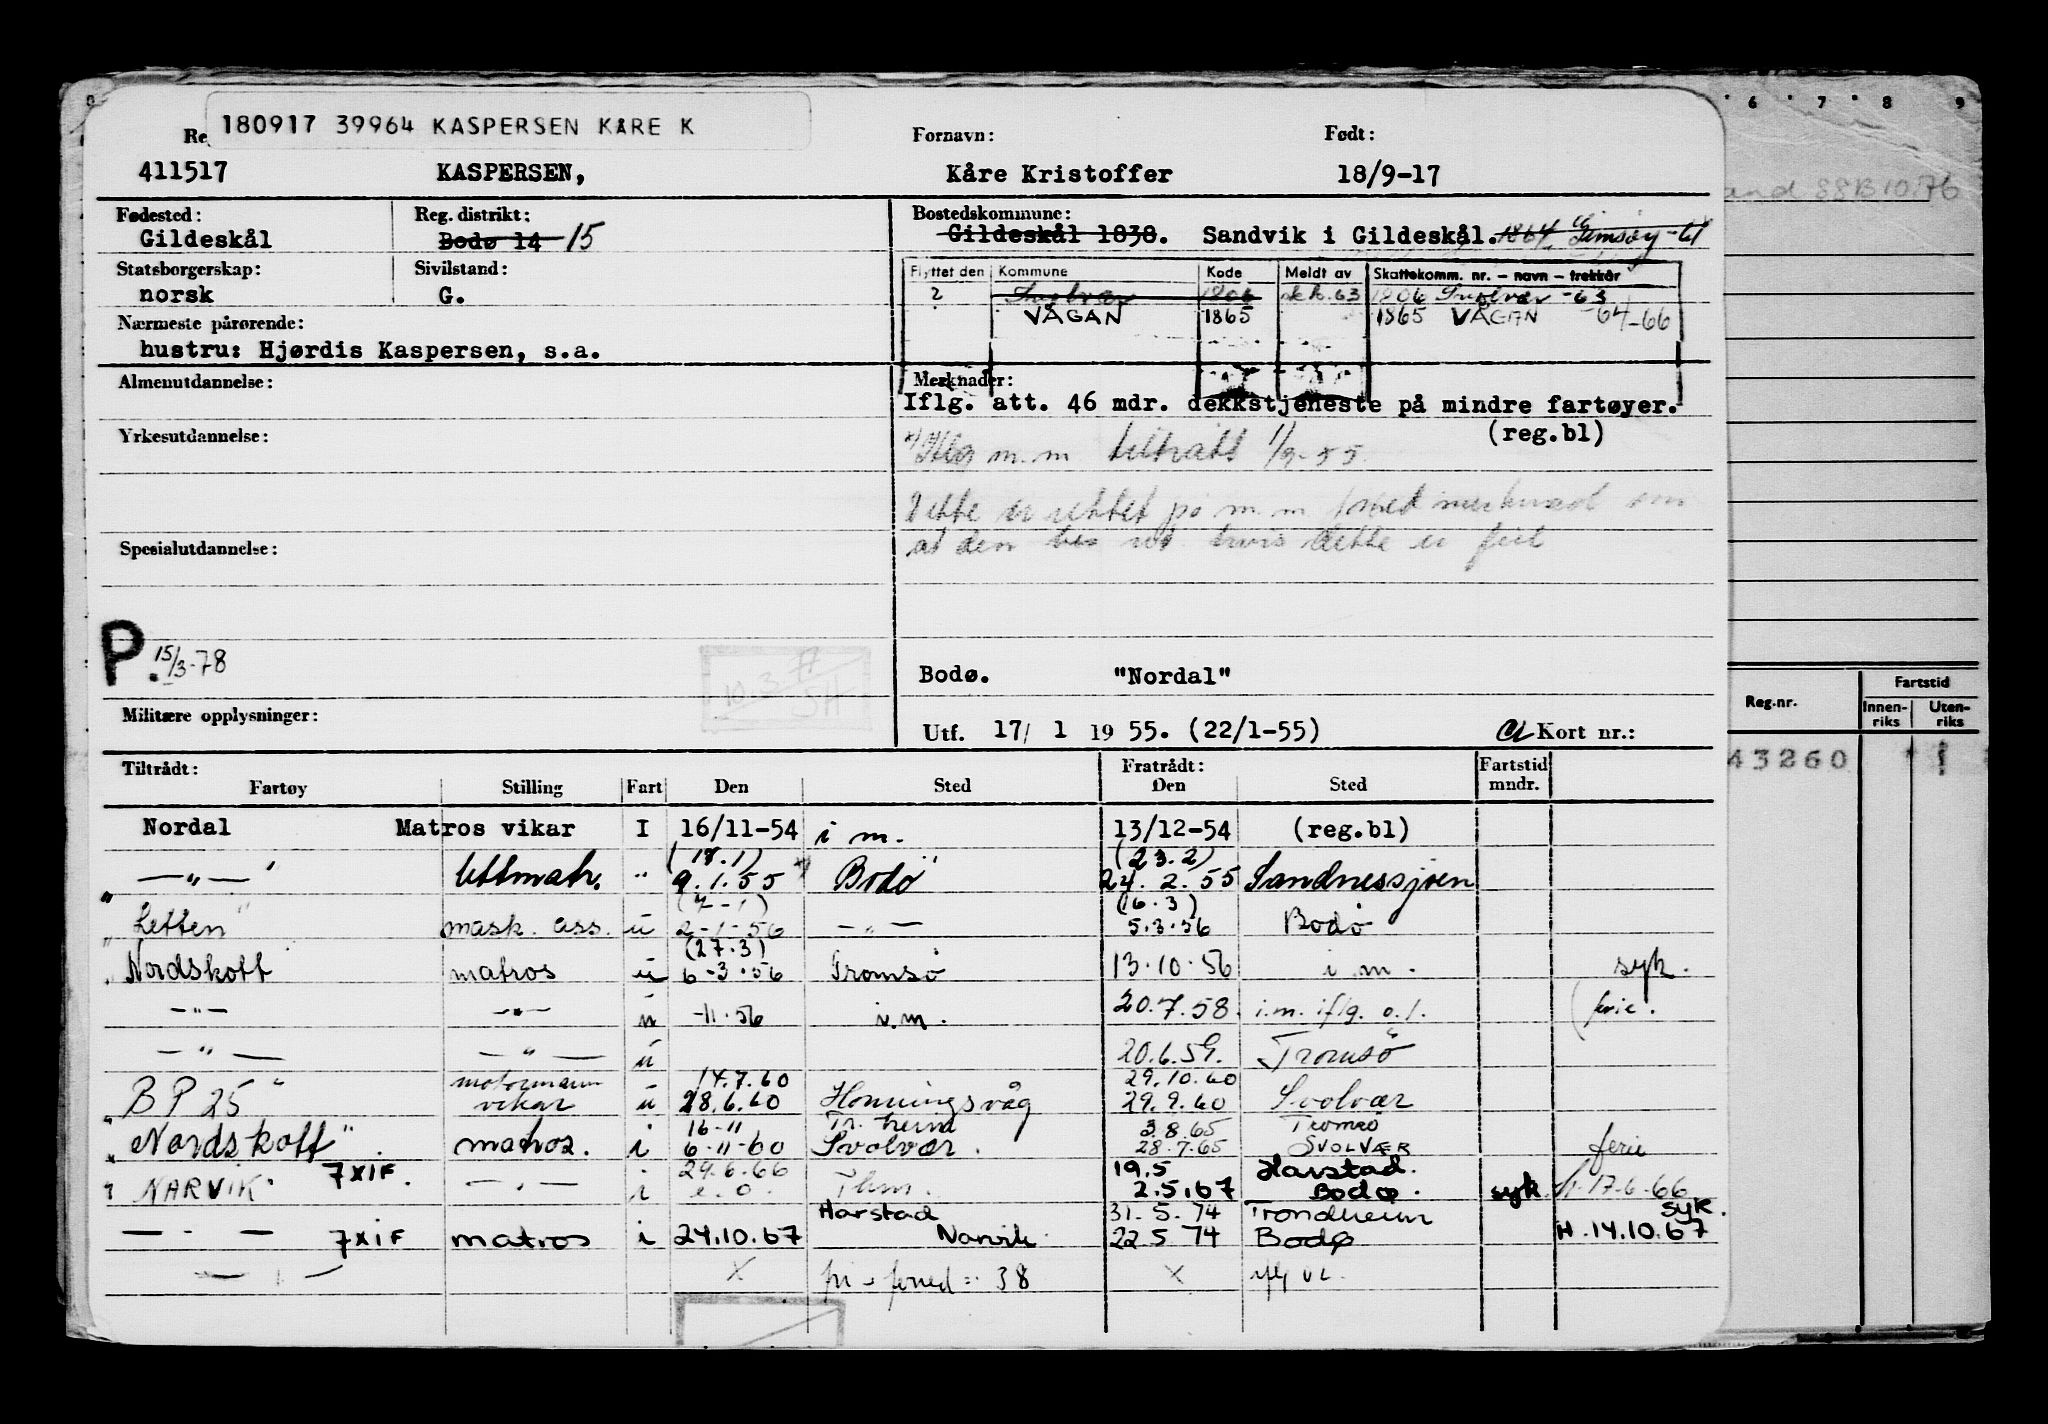 180917 39964 KASPERSEN KÅRE K
Re Fornavn: Født:
411517 KASPERSEN, Kåre Kristoffer 18/9-17
Fødested: Reg. distrikt: Bostedskommune:
Gildeskål Bodø 14 15 Gildeskål 1838. Sandvik i Gildeskål. 1864 Gimsøy
Statsborgerskap: Sivilstand:
norsk G.
Flyttet den Kommune Kode Meldt av Skattekomm. nr. – navn – trekkår
? Svolvær 1806 sk.k. 63 1806 Svolvær -63
VÅGAN 1865 1865 VÅGAN -64-66
Nærmeste pårørende:
hustru: Hjørdis Kaspersen, s.a.
Almenutdannelse: Merknader:
Iflg. att. 46 mdr. dekkstjeneste på mindre fartøyer.
(reg.bl)
Yrkesutdannelse:
x) Iflg m.m tiltrått 1/9-55.
Dette er rettet på m.m med merknad om
at den bes ret. hvis dette er feil
Spesialutdannelse:
P. 15/3-78
10.3.77
SH
Bodø. "Nordal"
Militære opplysninger:
Utf. 17/ 1 19 55. (22/1-55) Kort nr.:
Tiltrådt: Fratrådt: Fartstid
Fartøy Stilling Fart Den Sted Den Sted mndr.
Nordal Matros vikar I 16/11-54 i m. 13/12-54 (reg.bl)
(18.1) (23.2)
— " — lettmatr. " 9.1.55 x) Bodø 24.2.55 Sandnessjøen
(7-1) (16.3)
"Letten" mask. ass. u 2-1-56 — " — 5.3.56 Bodø
(27.3)
"Nordskott matros u 6-3-56 Tromsø 13.10.56 i m. syk.
— " — — " — u -11-56 i.m. 20.7.58. i.m. iflg. o.l. (ferie.
— " — — " — u 20.6.59. Tromsø
motormann 14.7.60 29.10.60
"BP 25" vikar u 28.6.60 Honningsvåg 29.9.60 Svolvær
16-11 Tr. heim 3.8.65 Tromsø
"Nordskott". matros. i 6-11-60 Svolvær. 28.7.65 SVOLVÆR ferie
29.6.66 19.5 Harstad.
"NARVIK" 7XIF. — " — i e.o. Thm. 2.5.67 Bodø. syk. H. 17-6-66
Harstad 31.5.74 Trondheim syk.
— " — 7XIF matros i 24.10.67 Narvik 22.5 74 Bodø H. 14.10.67
— " — X 38 X
6 7 8 9
and 88B1076
Reg.nr. Fartstid
Innen-riks Uten-riks
43260